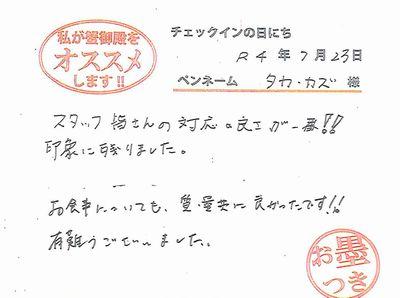 私が蟹御殿を
オススメ
します!!
チェックインの日にち
R4年7月23日
ペンネーム タカ・カズ 様
スタッフ皆さんの対応の良さが一番!!
印象に残りました。
お食事についても、質・量共に良かったです!!
有難うございました。
お墨
つき